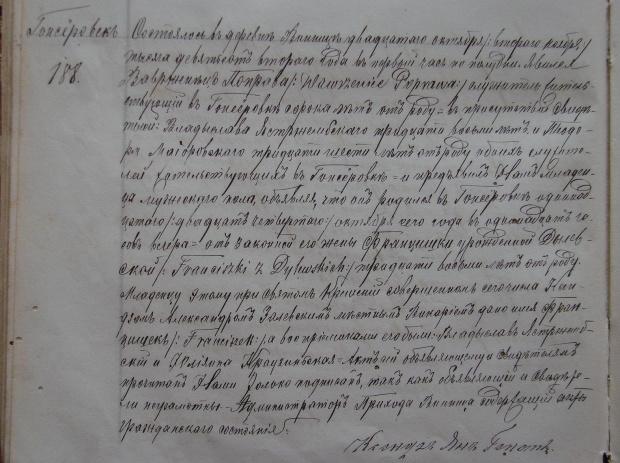 Гонсёровскъ
188.
Состоялось въ деревнѣ двадцатаго октября /: второго ноября /
тысяча девятьсотъ второго года въ первый часъ по полудни. Явился
Вавржинецъ Поправа /: Wawrzeniec Poprawa :/ служитель житель-
ствующій въ Гонсёровкѣ сорока лѣтъ отъ роду = въ присутствіи
Владыслава Ястржембскаго тридцати восьми лѣтъ и Теодо-
ра Маіоровскаго тридцати шести лѣтъ отъ роду обоихъ служите-
лей жительствующихъ въ Гонсёровкѣ = и предъявилъ Намъ младен-
ца мужескаго пола, объявляя, что онъ родился въ Гонсёровкѣ одиннад-
цатаго /: двадцать четвертаго :/ октября сего года въ одиннадцать ча-
совъ вечера = отъ законной его жены Францишки урожденной Дылев-
ской /: Franciszki z Dylewskich :/ тридцати восьми лѣтъ отъ роду.
Младенцу этому при святомъ крещеніи совершенномъ сего числа Ксен-
дзомъ Александромъ Залевскимъ мѣстнымъ Викаріемъ дано имя Фран-
цишекъ /: Franciszek :/ а воспріемниками его были: Владыславъ Ястржемб-
скій и Юліянна = Актъ сей объявляющему и свидѣтелямъ
прочитанъ Нами только подписанъ, такъ какъ объявляющій и свидѣте-
ли неграмотны. = Администраторъ Прихода содержащій акты
гражданскаго состоянія.
Ксендзъ Янъ